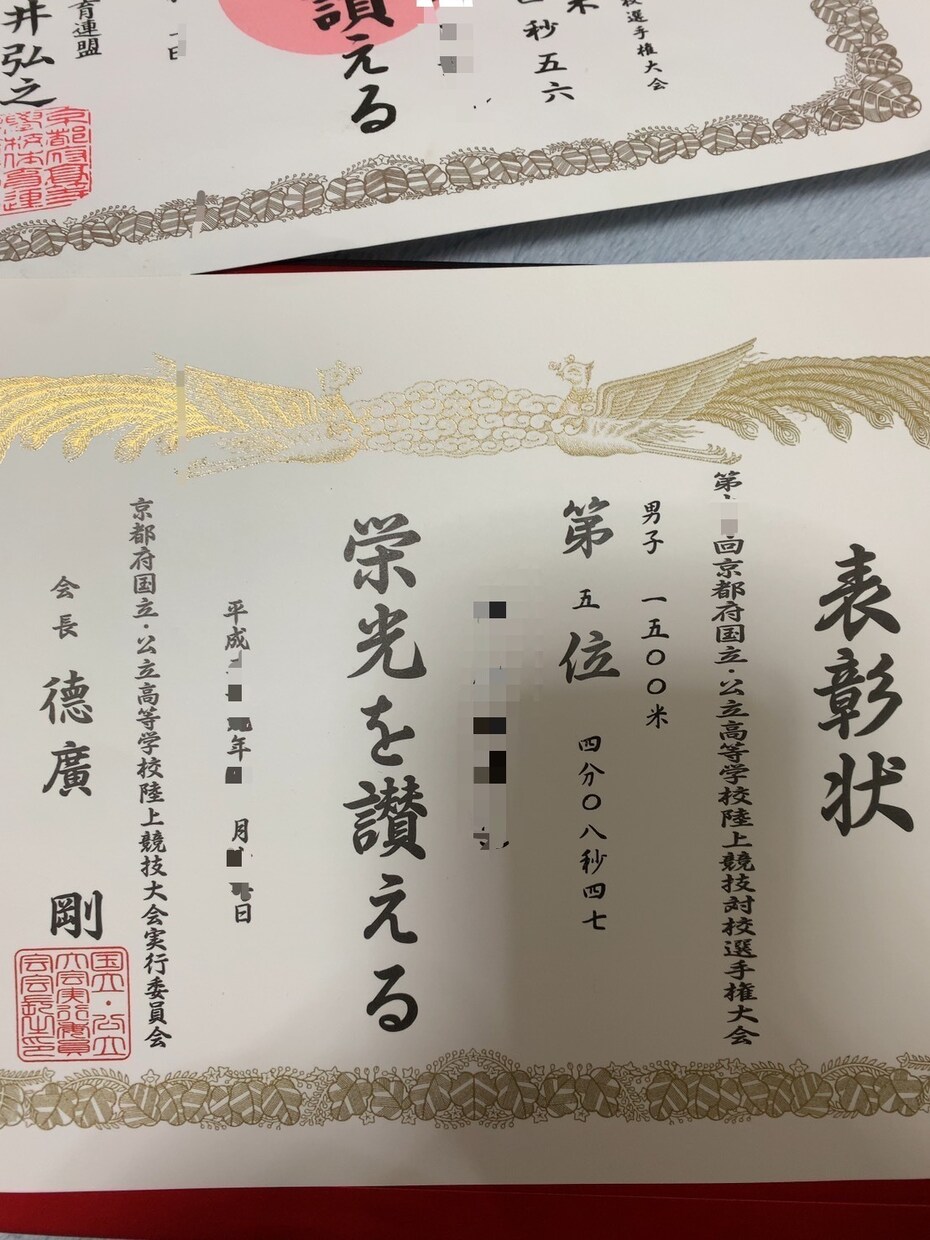 校選手権大会
米
秒五六
讃える
育連盟
井弘之
表彰状
第
回京都府国立・公立高等学校陸上競技対校選手権大会
男子 一五〇〇米
第五位 四分〇八秒四七
栄光を讃える
平成 年 月 日
京都府国立・公立高等学校陸上競技大会実行委員会
会長 德廣 剛